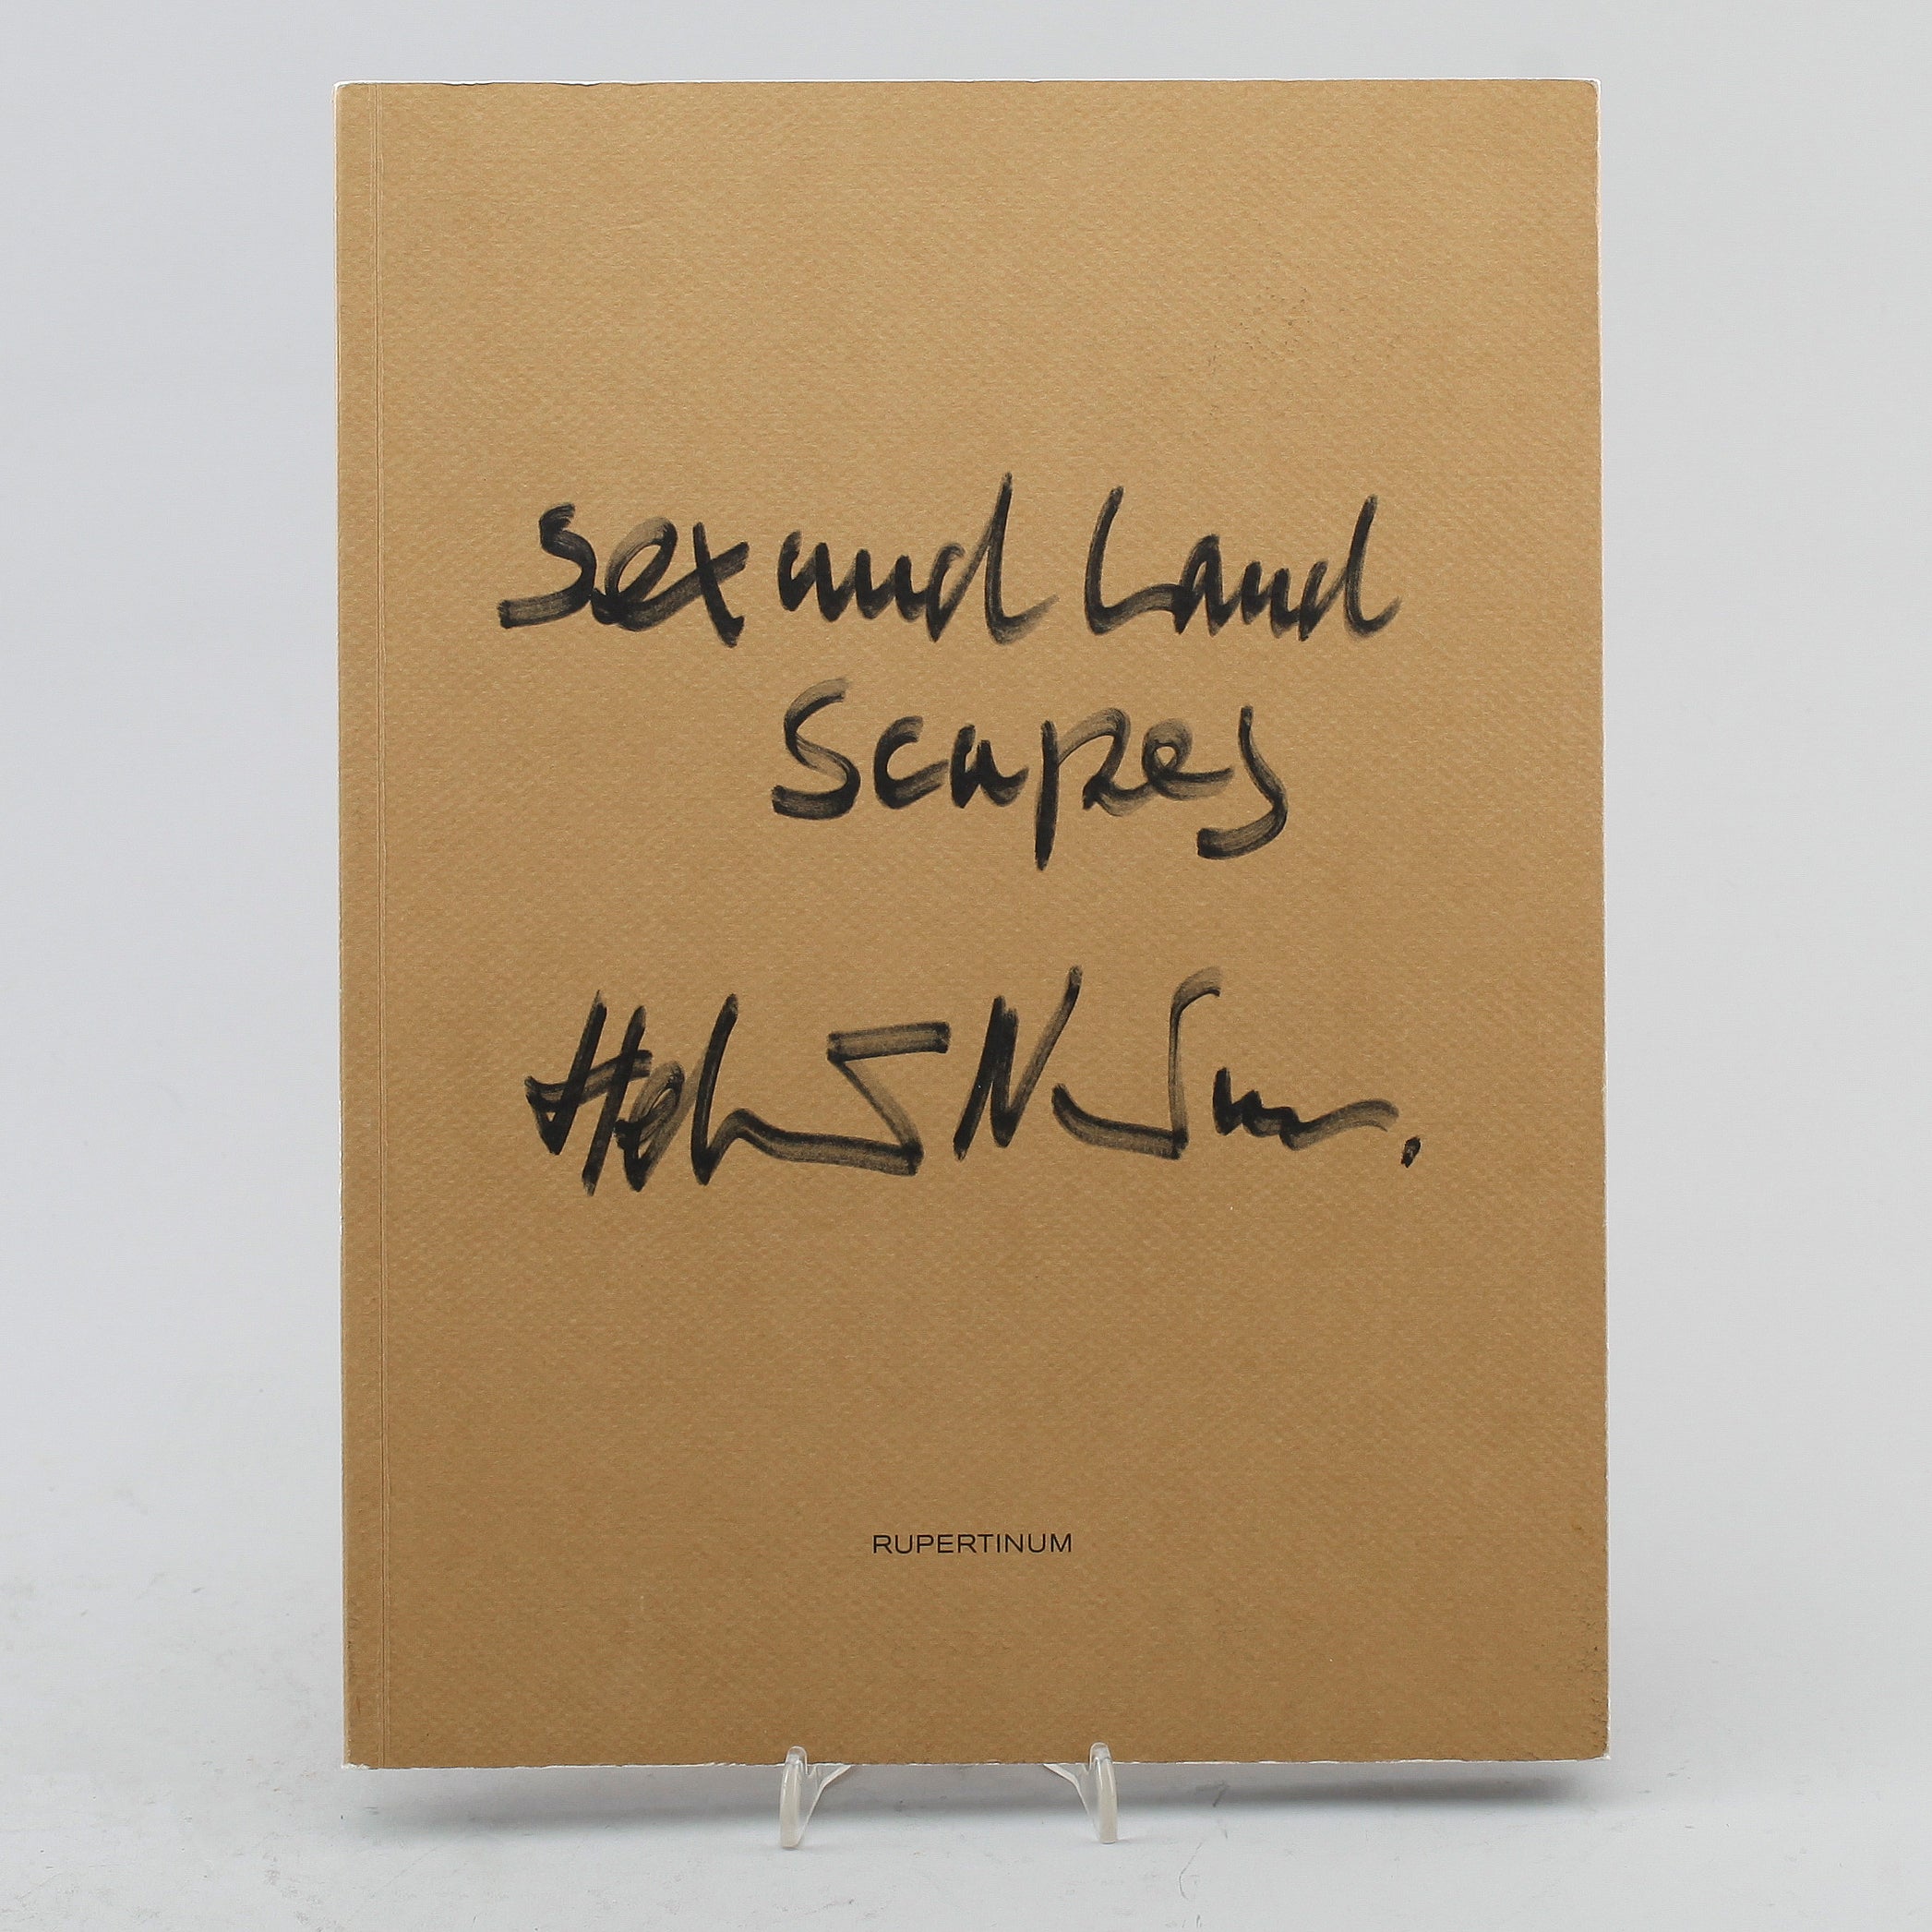 Sex and Land
Scapes
Helmut Newton.
RUPERTINUM